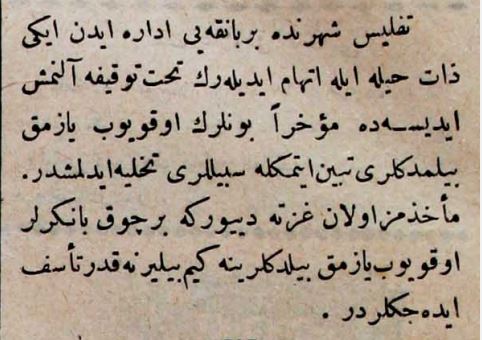 تفلیس شهرنده بربانقه‌یی اداره ایدن ایکی
ذات حیله ایله اتهام ایدیله‌رك تحت توقیفه آلنمش
ایدیسه‌ده مؤخراً بونلرك اوقویوب یازمق
بیلمدکلری تبین ایتمکله سبیللری تخلیه ایدلمشدر.
مأخذمز اولان غزته دییورکه برچوق بانکرلر
اوقویوب یازمق بیلدکلرینه کیم بیلیر نه قدر تأسف
ایده‌جکلردر .